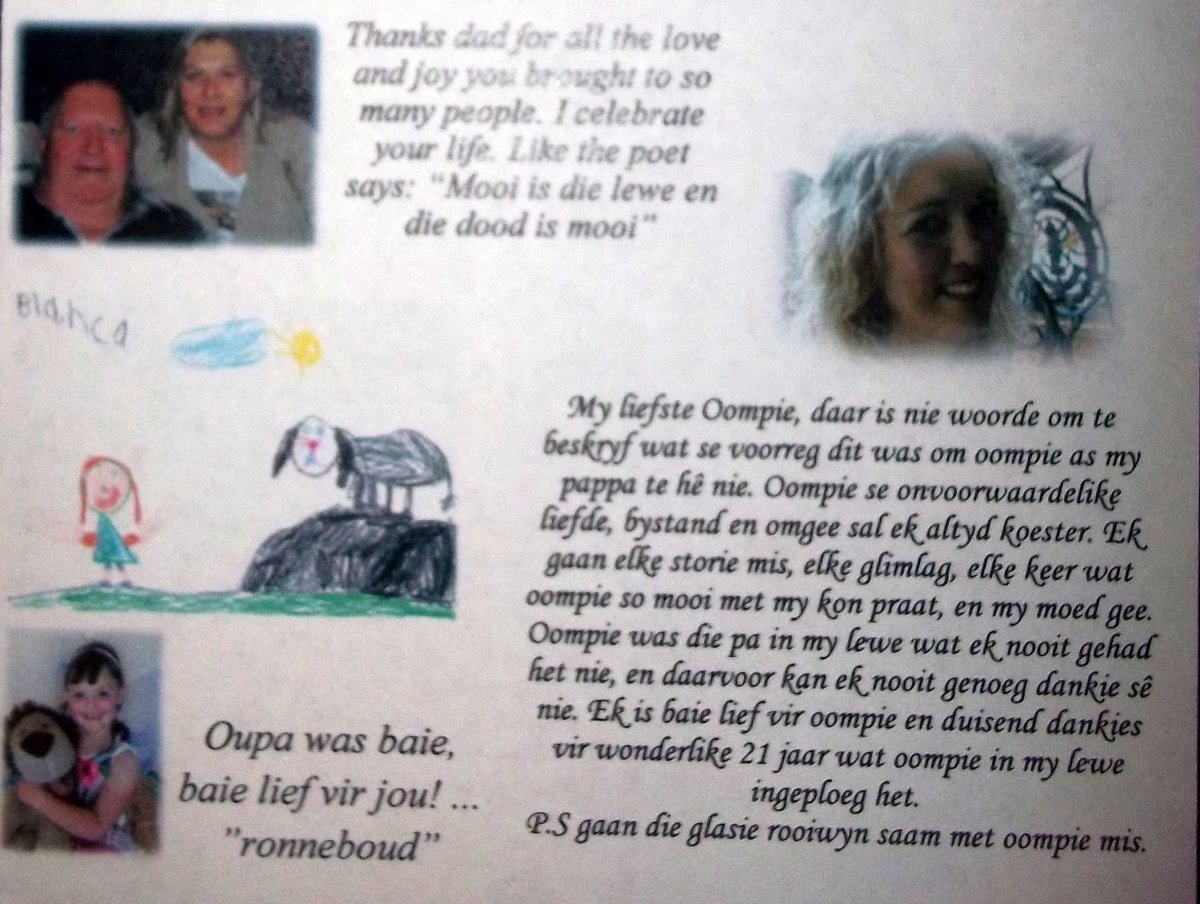 Thanks dad for all the love
and joy you brought to so
many people. I celebrate
your life. Like the poet
says: “Mooi is die lewe en
die dood is mooi”
Blanca
My liefste Oompie, daar is nie woorde om te
beskryf wat se voorreg dit was om oompie as my
pappa te hê nie. Oompie se onvoorwaardelike
liefde, bystand en omgee sal ek altyd koester. Ek
gaan elke storie mis, elke glimlag, elke keer wat
oompie so mooi met my kon praat, en my moed gee.
Oompie was die pa in my lewe wat ek nooit gehad
het nie, en daarvoor kan ek nooit genoeg dankie sê
nie. Ek is baie lief vir oompie en duisend dankies
vir wonderlike 21 jaar wat oompie in my lewe
ingeploeg het.
P.S gaan die glasie rooiwyn saam met oompie mis.
Oupa was baie,
baie lief vir jou! ...
”ronneboud”